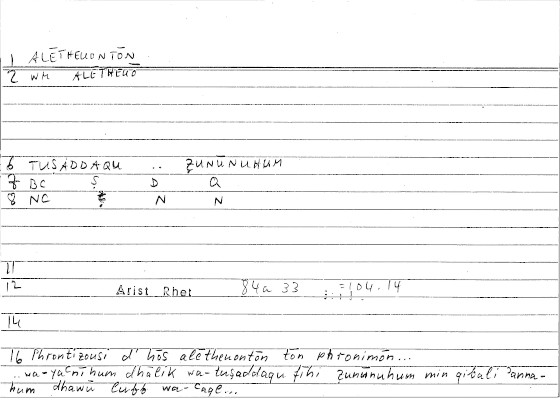 1 ALĒTHEUONTŌN
2 WH ALĒTHEUŌ
6 TUṢADDAQU .. ẒUNŪNUHUM
7 BC Ṣ D Q
8 NC Ẓ N N
11
12 Arist Rhet 84a 33 =104.14
14
16 Phrontizousi d' hōs alētheuontōn tōn phronimōn...
..wa-yaʿnīhum dhālik wa-tuṣaddaqu fīhi ẓunūnuhum min qibali ʾanna-
hum dhawū lubb wa-ʿaql...